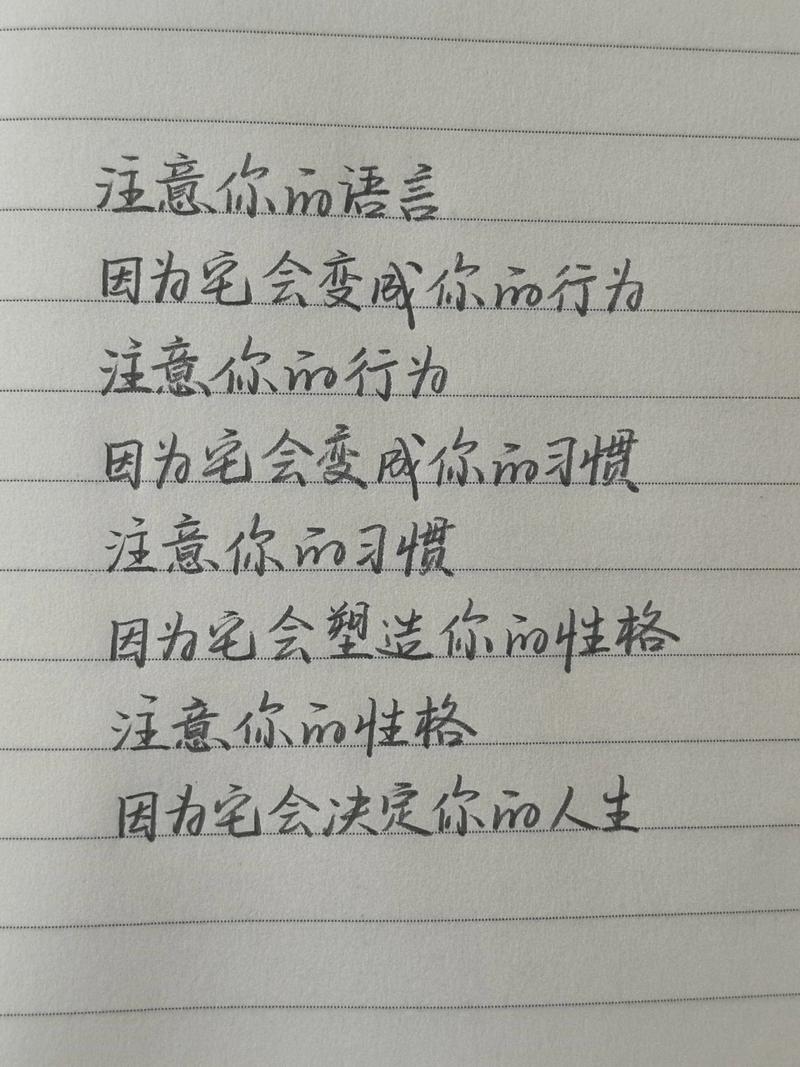 注意你的语言
因为它会变成你的行为
注意你的行为
因为它会变成你的习惯
注意你的习惯
因为它会塑造你的性格
注意你的性格
因为它会决定你的人生